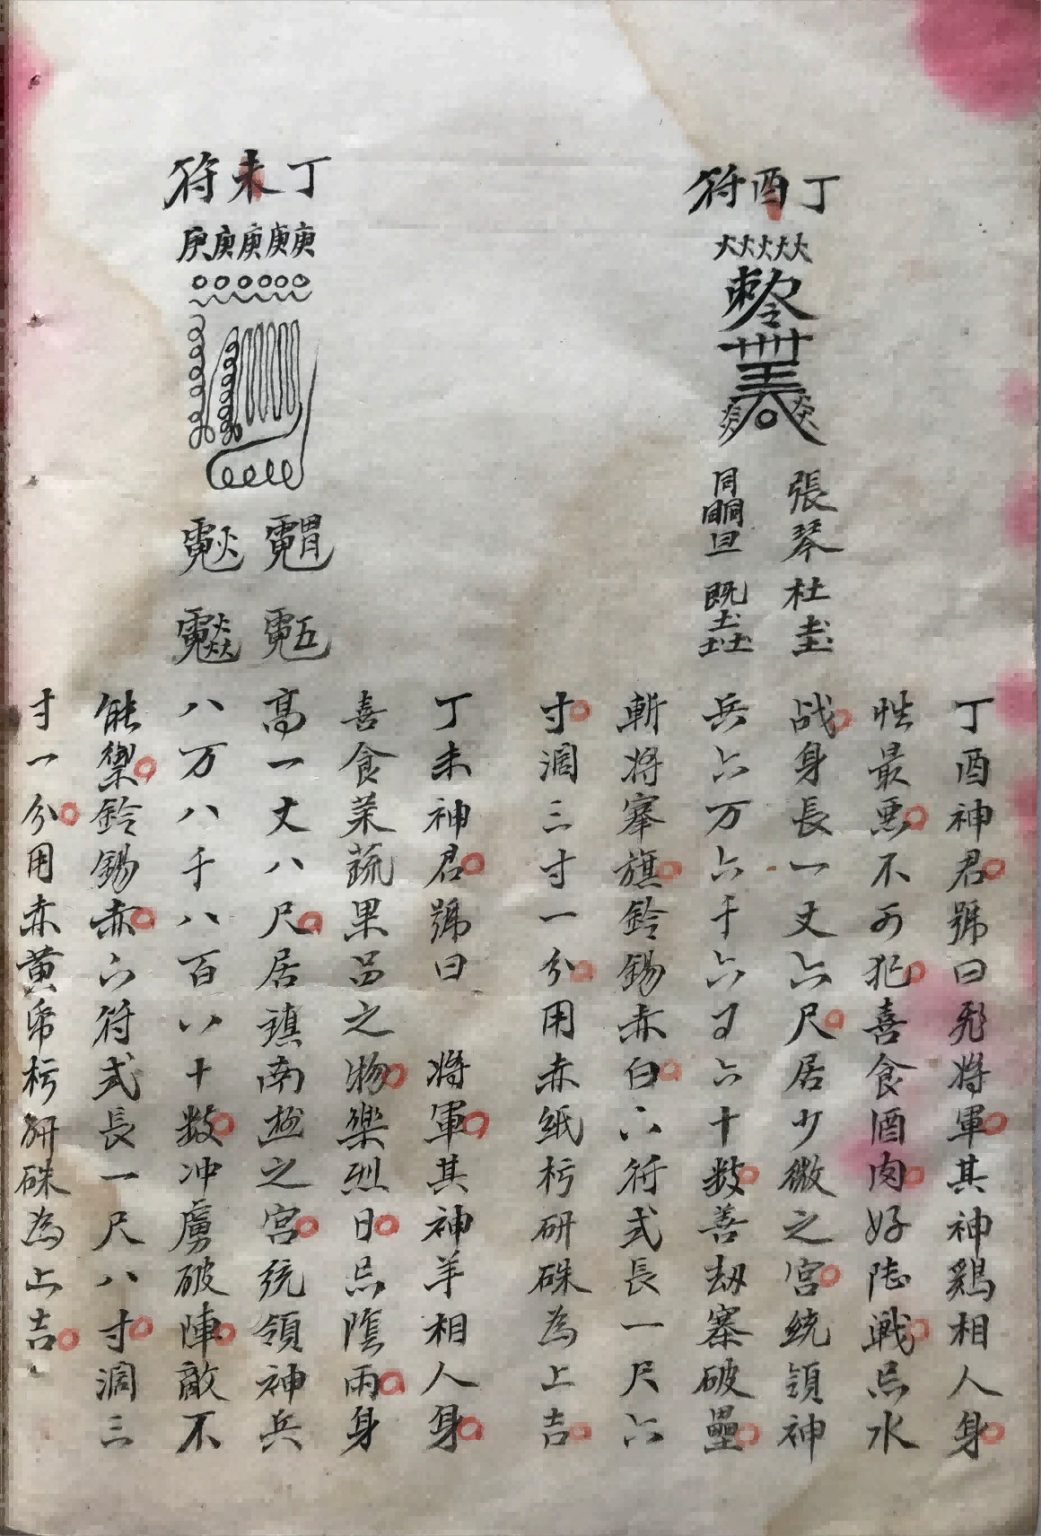 丁酉符
张琴杜
丁酉神君號曰飛将軍其神鷄相人身
性最悪不可犯喜食酒肉好陆戦忌水
战身長一丈六尺居少微之宮統領神
兵六万六千六百六十数善劫寨破壘
斬将搴旗鈴錫赤白六符式長一尺六
寸濶三寸一分用赤纸朽研硃為上吉
丁未符
庚庚庚庚庚
丁未神君號曰 将軍其神羊相人身
喜食菜蔬果品之物樂烈日忌隂雨身
高一丈八尺居鎮南逰之宮統領神兵
八万八千八百八十数冲虜破陣敵不
能禦鈴錫赤六符式長一尺八寸濶三
寸一分用赤黄帋朽研硃為上吉